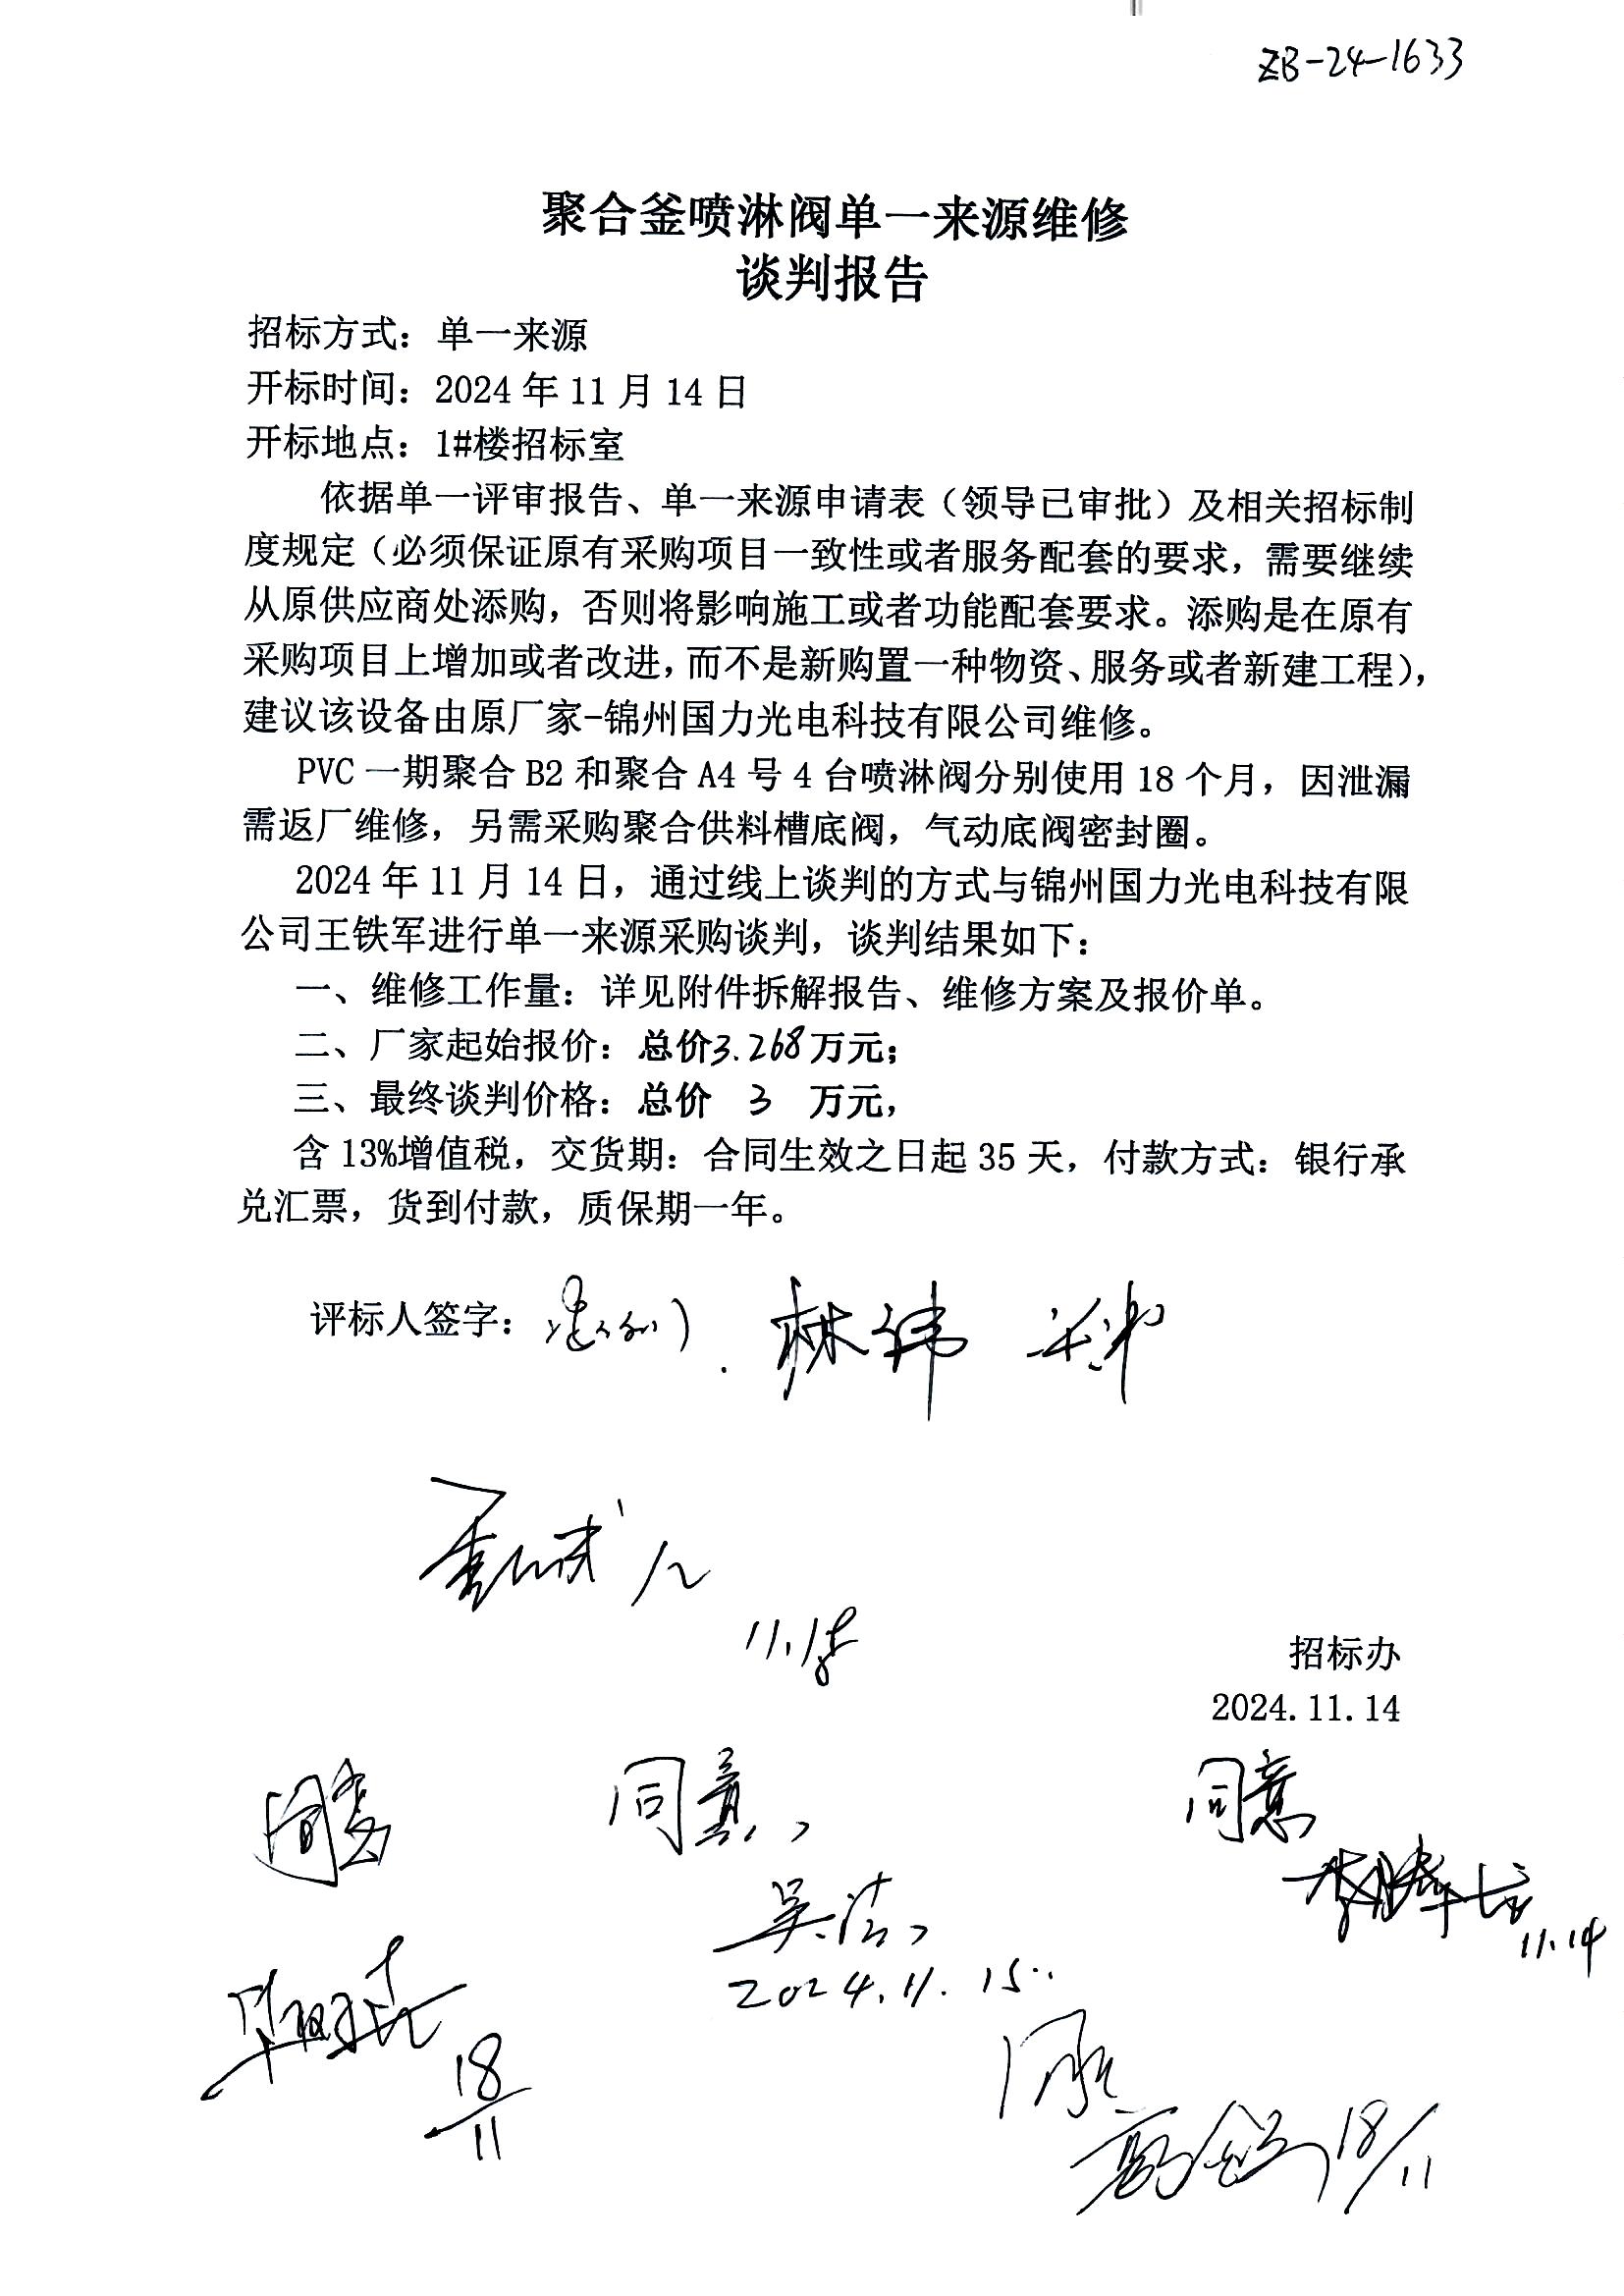 ZB-24-1633
聚合釜喷淋阀单一来源维修
谈判报告
招标方式：单一来源
开标时间：2024年11月14日
开标地点：1#楼招标室
依据单一评审报告、单一来源申请表（领导已审批）及相关招标制
度规定（必须保证原有采购项目一致性或者服务配套的要求，需要继续
从原供应商处添购，否则将影响施工或者功能配套要求。添购是在原有
采购项目上增加或者改进，而不是新购置一种物资、服务或者新建工程），
建议该设备由原厂家-锦州国力光电科技有限公司维修。
PVC一期聚合B2和聚合A4号4台喷淋阀分别使用18个月，因泄漏
需返厂维修，另需采购聚合供料槽底阀，气动底阀密封圈。
2024年11月14日，通过线上谈判的方式与锦州国力光电科技有限
公司王铁军进行单一来源采购谈判，谈判结果如下：
一、维修工作量：详见附件拆解报告、维修方案及报价单。
二、厂家起始报价：总价3.268万元；
三、最终谈判价格：总价 3 万元，
含13%增值税，交货期：合同生效之日起35天，付款方式：银行承
兑汇票，货到付款，质保期一年。
评标人签字： 林伟
11.18
招标办
2024.11.14
同意 同意 同意
吴洁
11.14
2024.11.15
18/11
同意
18/11